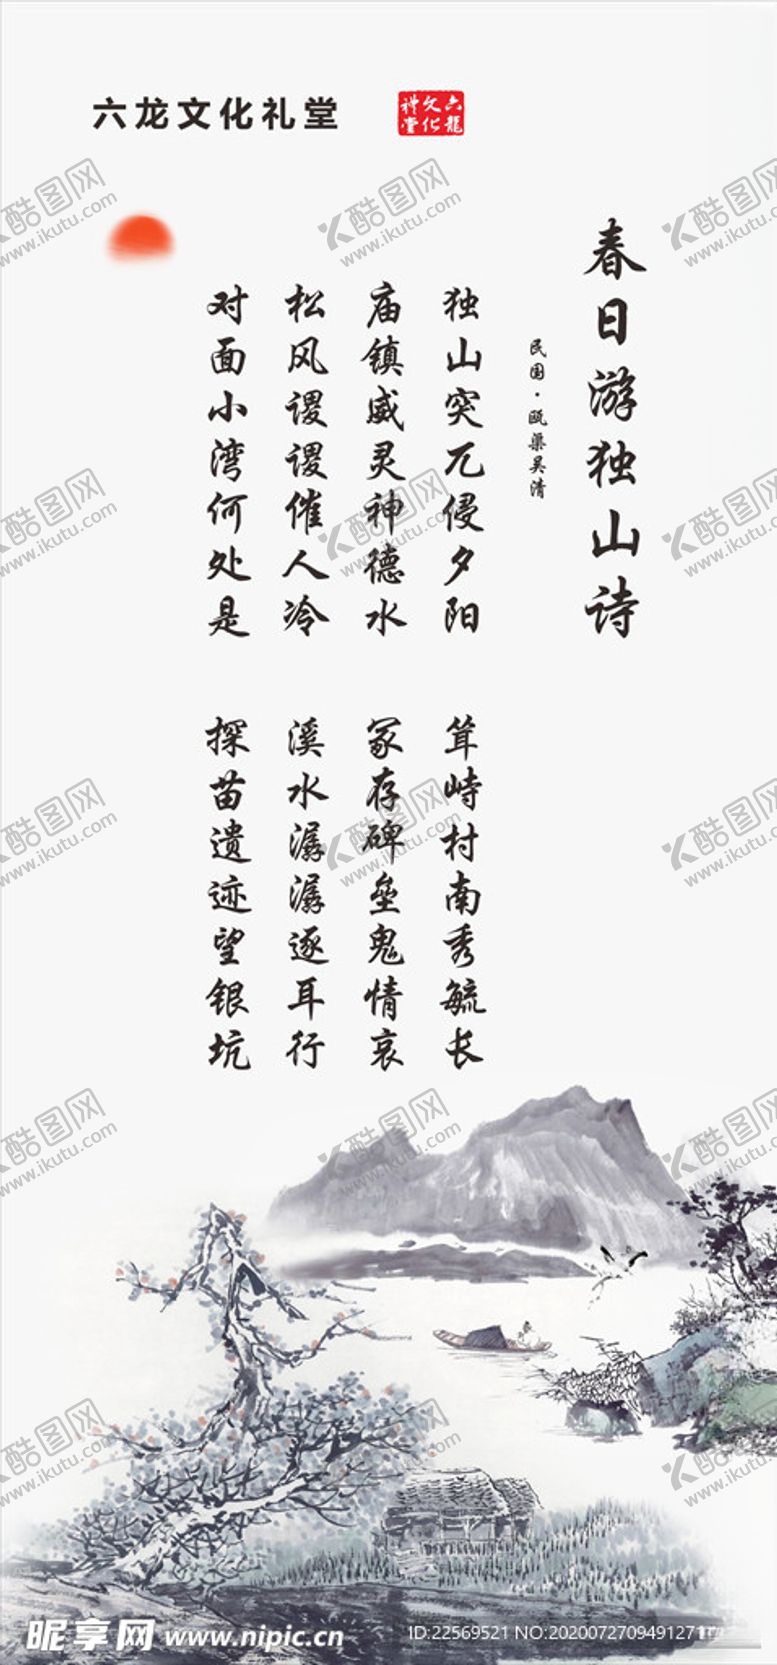 六龙文化礼堂
六龍文化禮堂
春日游独山诗
民国·瓯渠吴清
独山突兀侵夕阳
耸峙村南秀毓长
庙镇威灵神德水
冢存碑垒鬼情哀
松风谡谡催人冷
溪水潺潺逐耳行
对面小湾何处是
探苗遗迹望银坑
酷图网
www.ikutu.com
昵享网 www.nipic.cn
ID:22569521 NO:20200727094912717